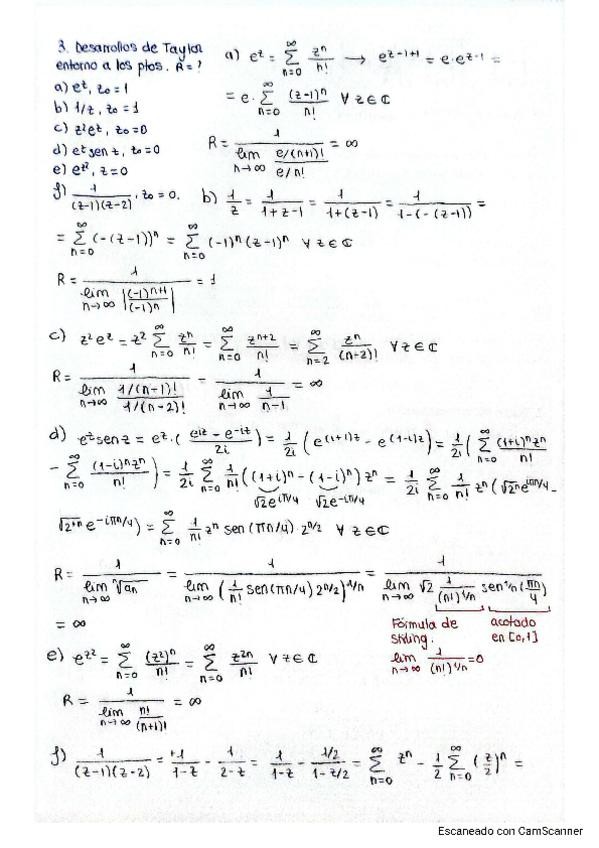 3. Desarrollos de Taylor
entorno a los ptos. R=?
a) e^z, z₀=1
b) 1/z, z₀=1
c) z²e^z, z₀=0
d) e^z sen z, z₀=0
e) e^{z²}, z=0
f) 1/((z-1)(z-2)), z₀=0.
a) e^z = ∑_{n=0}^{∞} z^n/n! → e^{z-1+1} = e·e^{z-1} =
= e·∑_{n=0}^{∞} (z-1)^n/n! ∀z∈ℂ
R = 1/(lim_{n→∞} (e/(n+1)!)/(e/n!)) = ∞
b) 1/z = 1/(1+z-1) = 1/(1+(z-1)) = 1/(1-(-(z-1))) =
= ∑_{n=0}^{∞} (-(z-1))^n = ∑_{n=0}^{∞} (-1)^n (z-1)^n ∀z∈ℂ
R = 1/(lim_{n→∞} |(-1)^{n+1}/(-1)^n|) = 1
c) z²e^z = z² ∑_{n=0}^{∞} z^n/n! = ∑_{n=0}^{∞} z^{n+2}/n! = ∑_{n=2}^{∞} z^n/(n-2)! ∀z∈ℂ
R = 1/(lim_{n→∞} (1/(n-1)!)/(1/(n-2)!)) = 1/(lim_{n→∞} 1/(n-1)) = ∞
d) e^z sen z = e^z·((e^{iz}-e^{-iz})/2i) = 1/2i (e^{(1+i)z} - e^{(1-i)z}) = 1/2i (∑_{n=0}^{∞} (1+i)^n z^n/n!
- ∑_{n=0}^{∞} (1-i)^n z^n/n!) = 1/2i ∑_{n=0}^{∞} 1/n! ((1+i)^n - (1-i)^n) z^n = 1/2i ∑_{n=0}^{∞} 1/n! z^n (√2^n e^{iπn/4} -
√2e^{iπ/4} √2e^{-iπ/4}
√2^n e^{-iπn/4}) = ∑_{n=0}^{∞} 1/n! z^n sen(πn/4)·2^{n/2} ∀z∈ℂ
R = 1/(lim_{n→∞} ⁿ√a_n) = 1/(lim_{n→∞} (1/n! sen(πn/4) 2^{n/2})^{1/n}) = 1/(lim_{n→∞} √2 1/(n!)^{1/n} sen^{1/n}(πn/4))
= ∞
Fórmula de
Stirling.
lim_{n→∞} 1/(n!)^{1/n} = 0
acotado
en [0,1]
e) e^{z²} = ∑_{n=0}^{∞} (z²)^n/n! = ∑_{n=0}^{∞} z^{2n}/n! ∀z∈ℂ
R = 1/(lim_{n→∞} n!/(n+1)!) = ∞
f) 1/((z-1)(z-2)) = +1/(1-z) - 1/(2-z) = 1/(1-z) - (1/2)/(1-z/2) = ∑_{n=0}^{∞} z^n - 1/2 ∑_{n=0}^{∞} (z/2)^n =
Escaneado con CamScanner